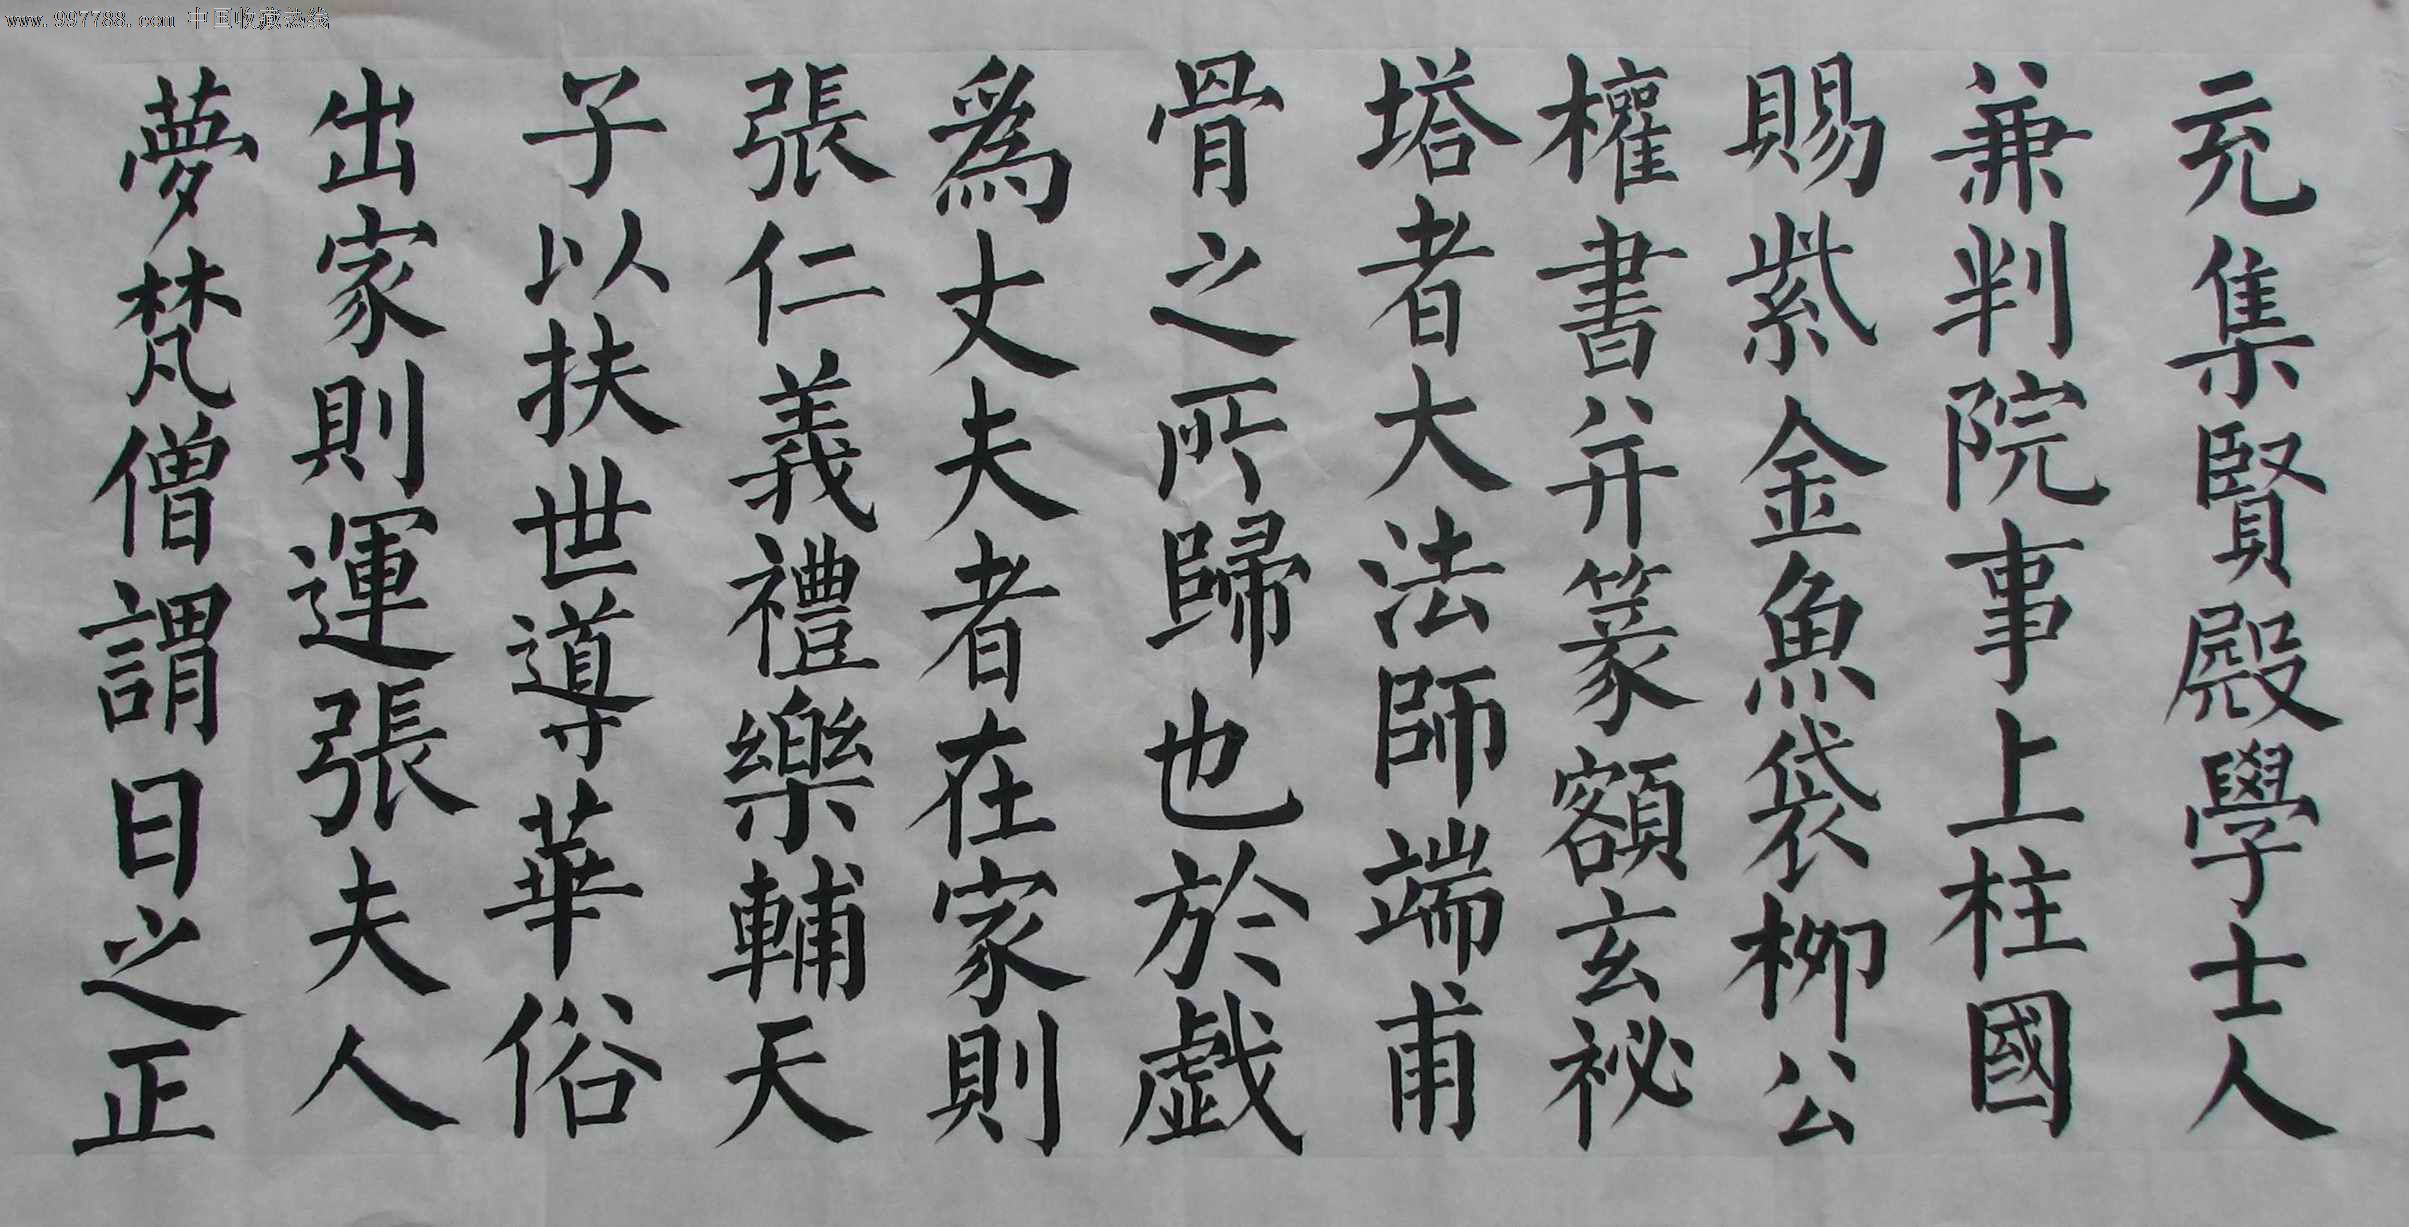 www.997788.com 中国收藏热线
充集賢殿學士人
兼判院事上柱國
賜紫金魚袋柳公
權書并篆額玄祕
塔者大法師端甫
骨之所歸也於戲
為丈夫者在家則
張仁義禮樂輔天
子以扶世導華俗
出家則運張夫人
夢梵僧謂曰之正